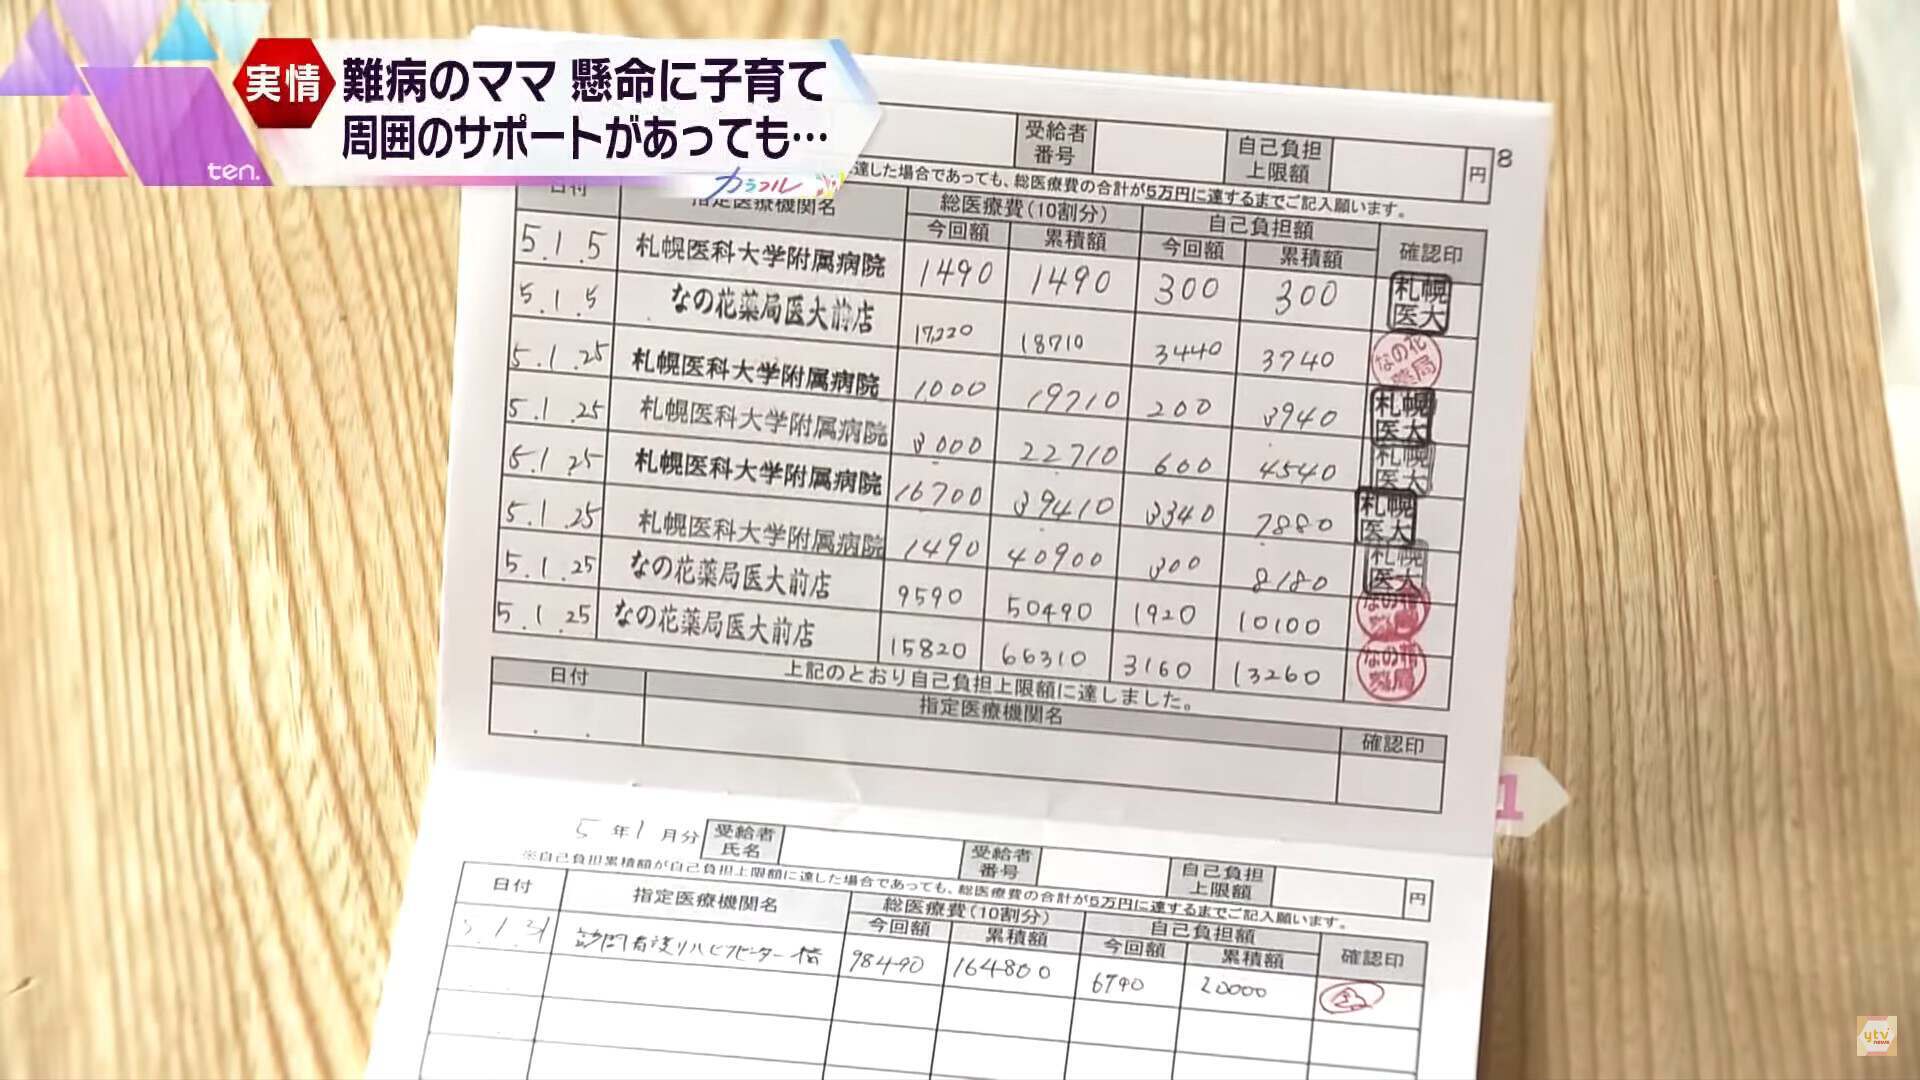 実情
難病のママ 懸命に子育て
周囲のサポートがあっても…
ten.
カラフル
受給者番号 自己負担上限額 円 8
達した場合であっても、総医療費の合計が5万円に達するまでご記入願います。
日付 指定医療機関名 総医療費(10割分) 自己負担額 確認印
今回額 累積額 今回額 累積額
5.1.5 札幌医科大学附属病院 1490 1490 300 300 札幌医大
5.1.5 なの花薬局医大前店 17,220 18710 3440 3740 なの花薬局
5.1.25 札幌医科大学附属病院 1,000 19710 200 3940 札幌医大
5.1.25 札幌医科大学附属病院 3000 22710 600 4540 札幌医大
5.1.25 札幌医科大学附属病院 16700 39410 3340 7880 札幌医大
5.1.25 札幌医科大学附属病院 1490 40900 300 8180 札幌医大
5.1.25 なの花薬局医大前店 9590 50490 1920 10100 なの花薬局
5.1.25 なの花薬局医大前店 15820 66310 3160 13260 なの花薬局
上記のとおり自己負担上限額に達しました。
日付 指定医療機関名 確認印
1
5年1月分 受給者氏名 受給者番号 自己負担上限額 円
※自己負担累積額が自己負担上限額に達した場合であっても、総医療費の合計が5万円に達するまでご記入願います。
日付 指定医療機関名 総医療費(10割分) 自己負担額 確認印
今回額 累積額 今回額 累積額
5.1.31 訪問看護リハビリセンター 98490 164800 6740 20000
ytv news